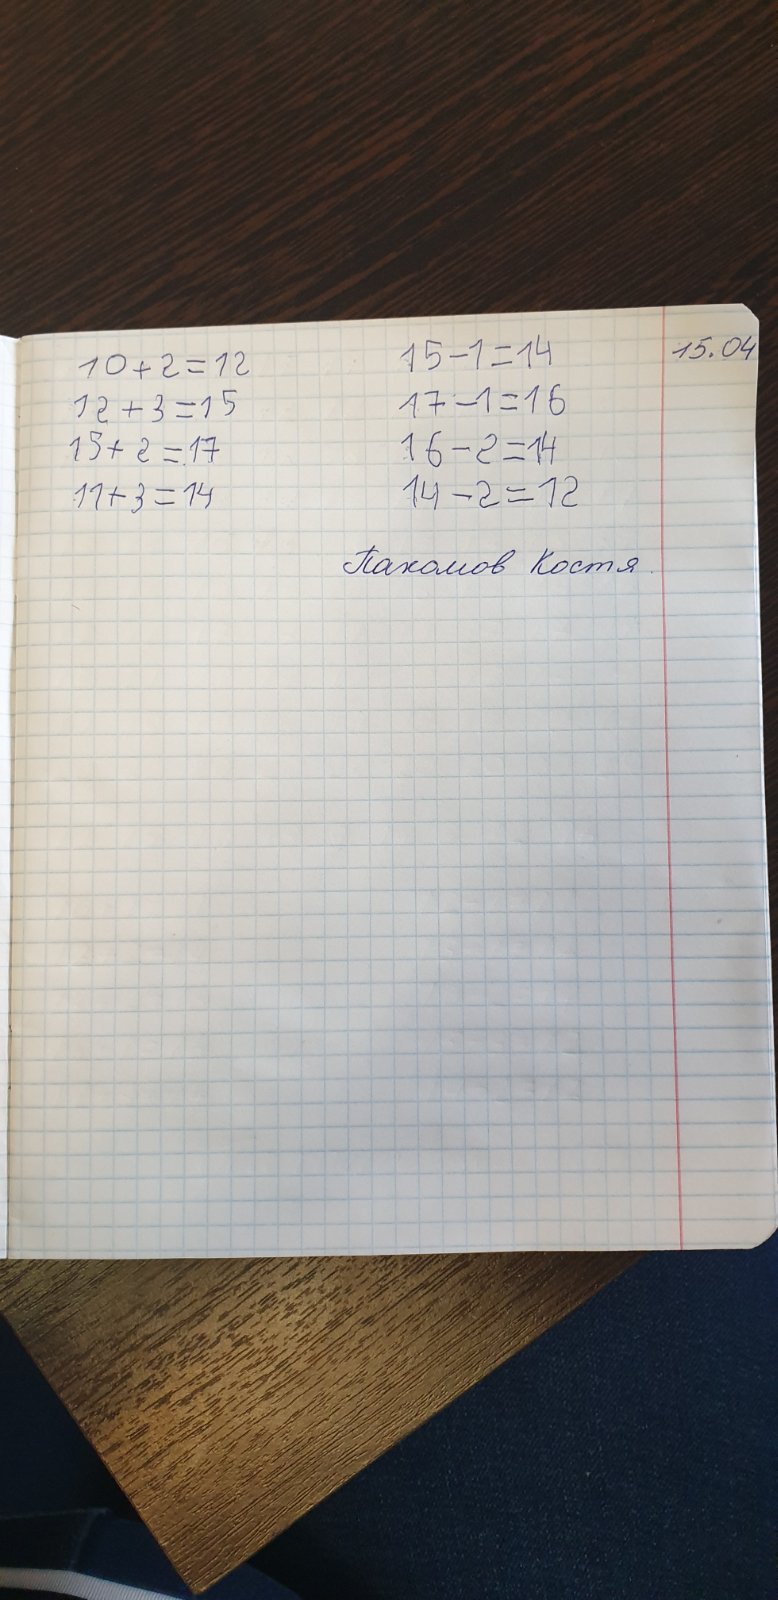 10+2=12
12+3=15
15+2=17
11+3=14
15-1=14
17-1=16
16-2=14
14-2=12
15.04
Пахомов Костя